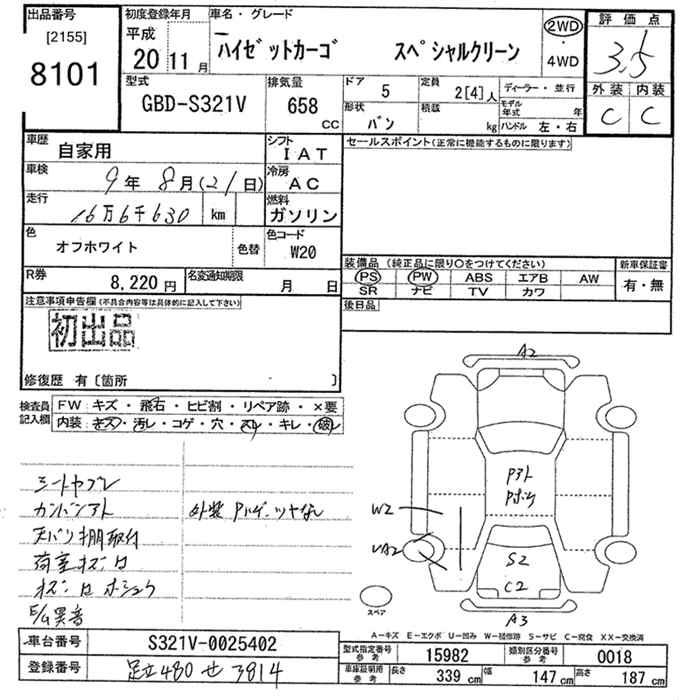 出品番号 初度登録年月 車名・グレード 評価点
[2155] 平成 2WD
8101 20 11月 ハイゼットカーゴ スペシャルクリーン ・ 3.5
4WD
型式 排気量 ドア 5 定員 2[4]人 ディーラー・並行 外装 内装
GBD-S321V 658 CC 形状 バン 積載 kg モデル年式 年 C C
ハンドル 左・右
車歴 自家用 シフト IAT セールスポイント(正常に機能するものに限ります)
車検 9年 8月(21日) 冷房 AC
走行 16万6千630 km 燃料 ガソリン
色 オフホワイト 色替 色コード W20
装備品(純正品に限り○をつけてください) 新車保証書
R券 8,220円 名変通知期限 月 日 PS PW ABS エアB AW 有・無
SR ナビ TV カワ
注意事項申告欄(不具合内容等は具体的に記入して下さい) 後日品
初出品
修復歴 有〔箇所 〕
検査員記入欄 FW:キズ・飛石・ヒビ割・リペア跡・×要
内装:キズ・汚レ・コゲ・穴・スレ・キレ・破レ
A2
シートヤブレ
カンバンアト 外装Pハゲ・ツヤなし
天バリ棚取付
荷室キズ・ロ
E/G異音
Pアト
W2
S2
C2
A3
スペア
A－キズ E－エクボ U－凹み W－補修跡 S－サビ C－腐食 XX－交換済
車台番号 S321V-0025402 型式指定番号 参考 15982 類別区分番号 参考 0018
登録番号 足立480せ3814 車庫証明用 参考 長さ 339cm 幅 147cm 高さ 187cm